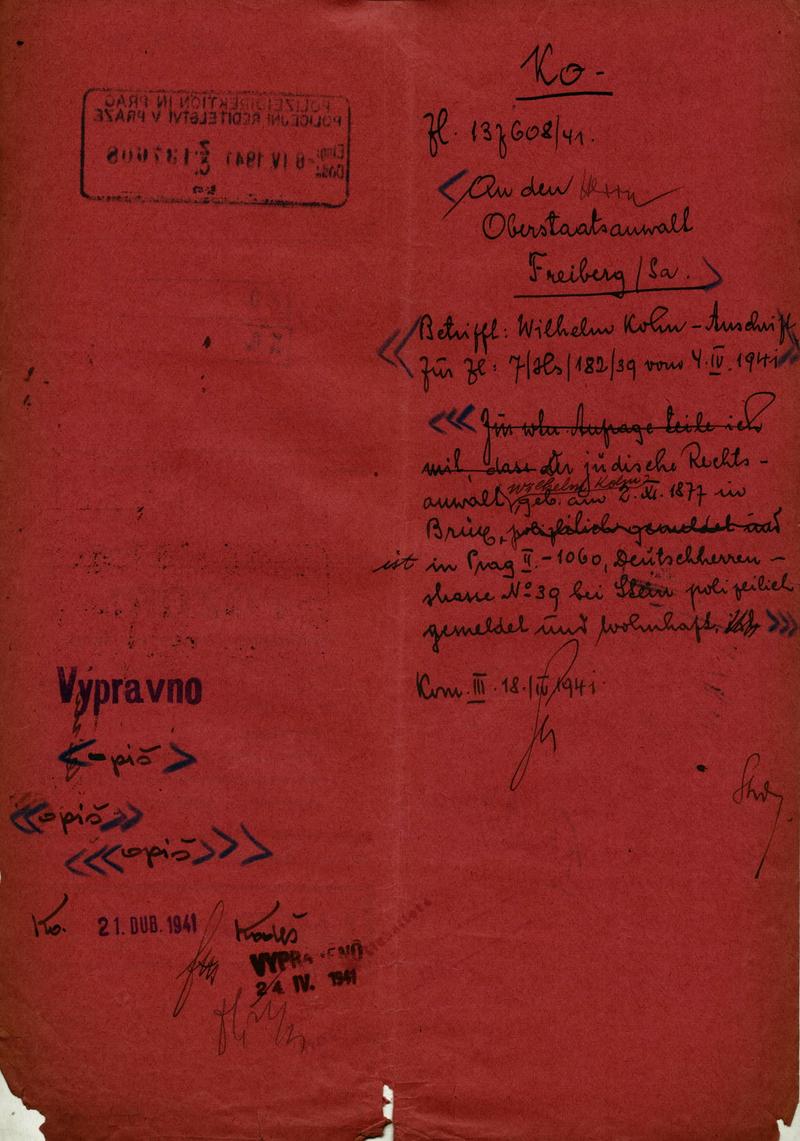 Ko-
Zl. 137608/41.
An den Herrn
Oberstaatsanwalt
Freiberg/Sa.
Betrifft: Wilhelm Kohn - Anschrift
Zur Zl: 7/Hs/182/39 vom 4.IV.1941
Zur whn. Anfrage teile ich
mit, dass der jüdische Rechts-
anwalt Wilhelm Kohn geb. am 2.XI.1877 in
Brüx, polizeilich gemeldet und
ist in Prag II.-1060, Deutschherren-
strasse No 39 bei Stein polizeilich
gemeldet und wohnhaft.
Kom. III. 18./IV 1941.
POLIZEIDIREKTION IN PRAG
POLICEJNÍ ŘEDITELSTVÍ V PRAZE
Eing: Došlo: -8 IV 1941 Z Č 137608
Výpravno
-piš
opiš
opiš
Ko. 21. DUB. 1941 Kadeš
VYPRAVENO
24 IV. 1941